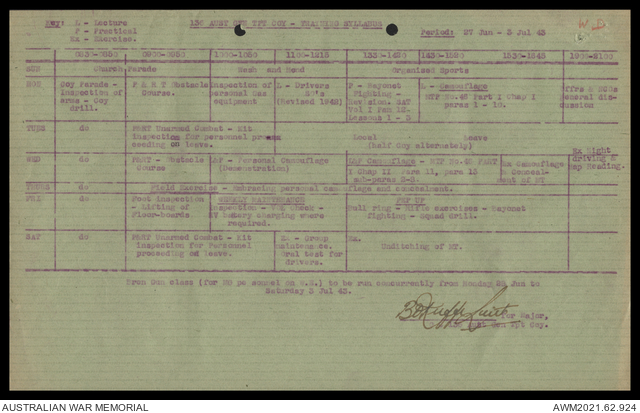 Key: L - Lecture
P - Practical
Ex - Exercise.
AUST GEN TPT COY - TRAINING SYLLABUS
Period: 27 Jun - 3 Jul 43
W D
0830-0850 0900-0950 1000-1050 1100-1215 1330-1420 1430-1520 1530-1645 1900-2100
SUN Church Parade Wash and Mend Organised Sports
MON Coy Parade - Inspection of arms - Coy drill.
P & R T Obstacle Course.
Inspection of personal Gas equipment
L - Drivers (Revised 1942)
P - Bayonet Fighting - Revision. SAT Vol I Pam 12. Lessons 1 - 3
L - Camouflage
MTP No.46 Part I Chap I paras 1 - 10.
Offrs & NCOs General discussion
TUES do
P&RT Unarmed Combat - Kit inspection for personnel proceeding on leave.
Local Leave
(half Coy alternately)
WED do
P&RT - Obstacle Course
L&P - Personal Camouflage (Demonstration)
L&P Camouflage - MTP No.46 PART I Chap II, Para 11, para 15 sub-paras
Ex Camouflage & Concealment of MT
Ex Night driving & Map Reading.
THURS do
Field Exercise - Embracing personal camouflage and concealment.
FRI do
Foot inspection - Lifting of Floor-boards
WEEKLY MAINTENANCE
Inspection - Check - battery charging where required.
Bull ring - Rifle exercises - Bayonet fighting - Squad drill.
SAT do
P&RT Unarmed Combat - Kit inspection for Personnel proceeding on leave.
Ex - Group maintenance. Oral test for drivers.
Ex.
Unditching of MT.
Bren Gun class (for 20 personnel on W.E.) to be run concurrently from Monday 28 Jun to
Saturday 3 Jul 43.
for Major,
Aust Gen Tpt Coy.
AUSTRALIAN WAR MEMORIAL
AWM2021.62.924